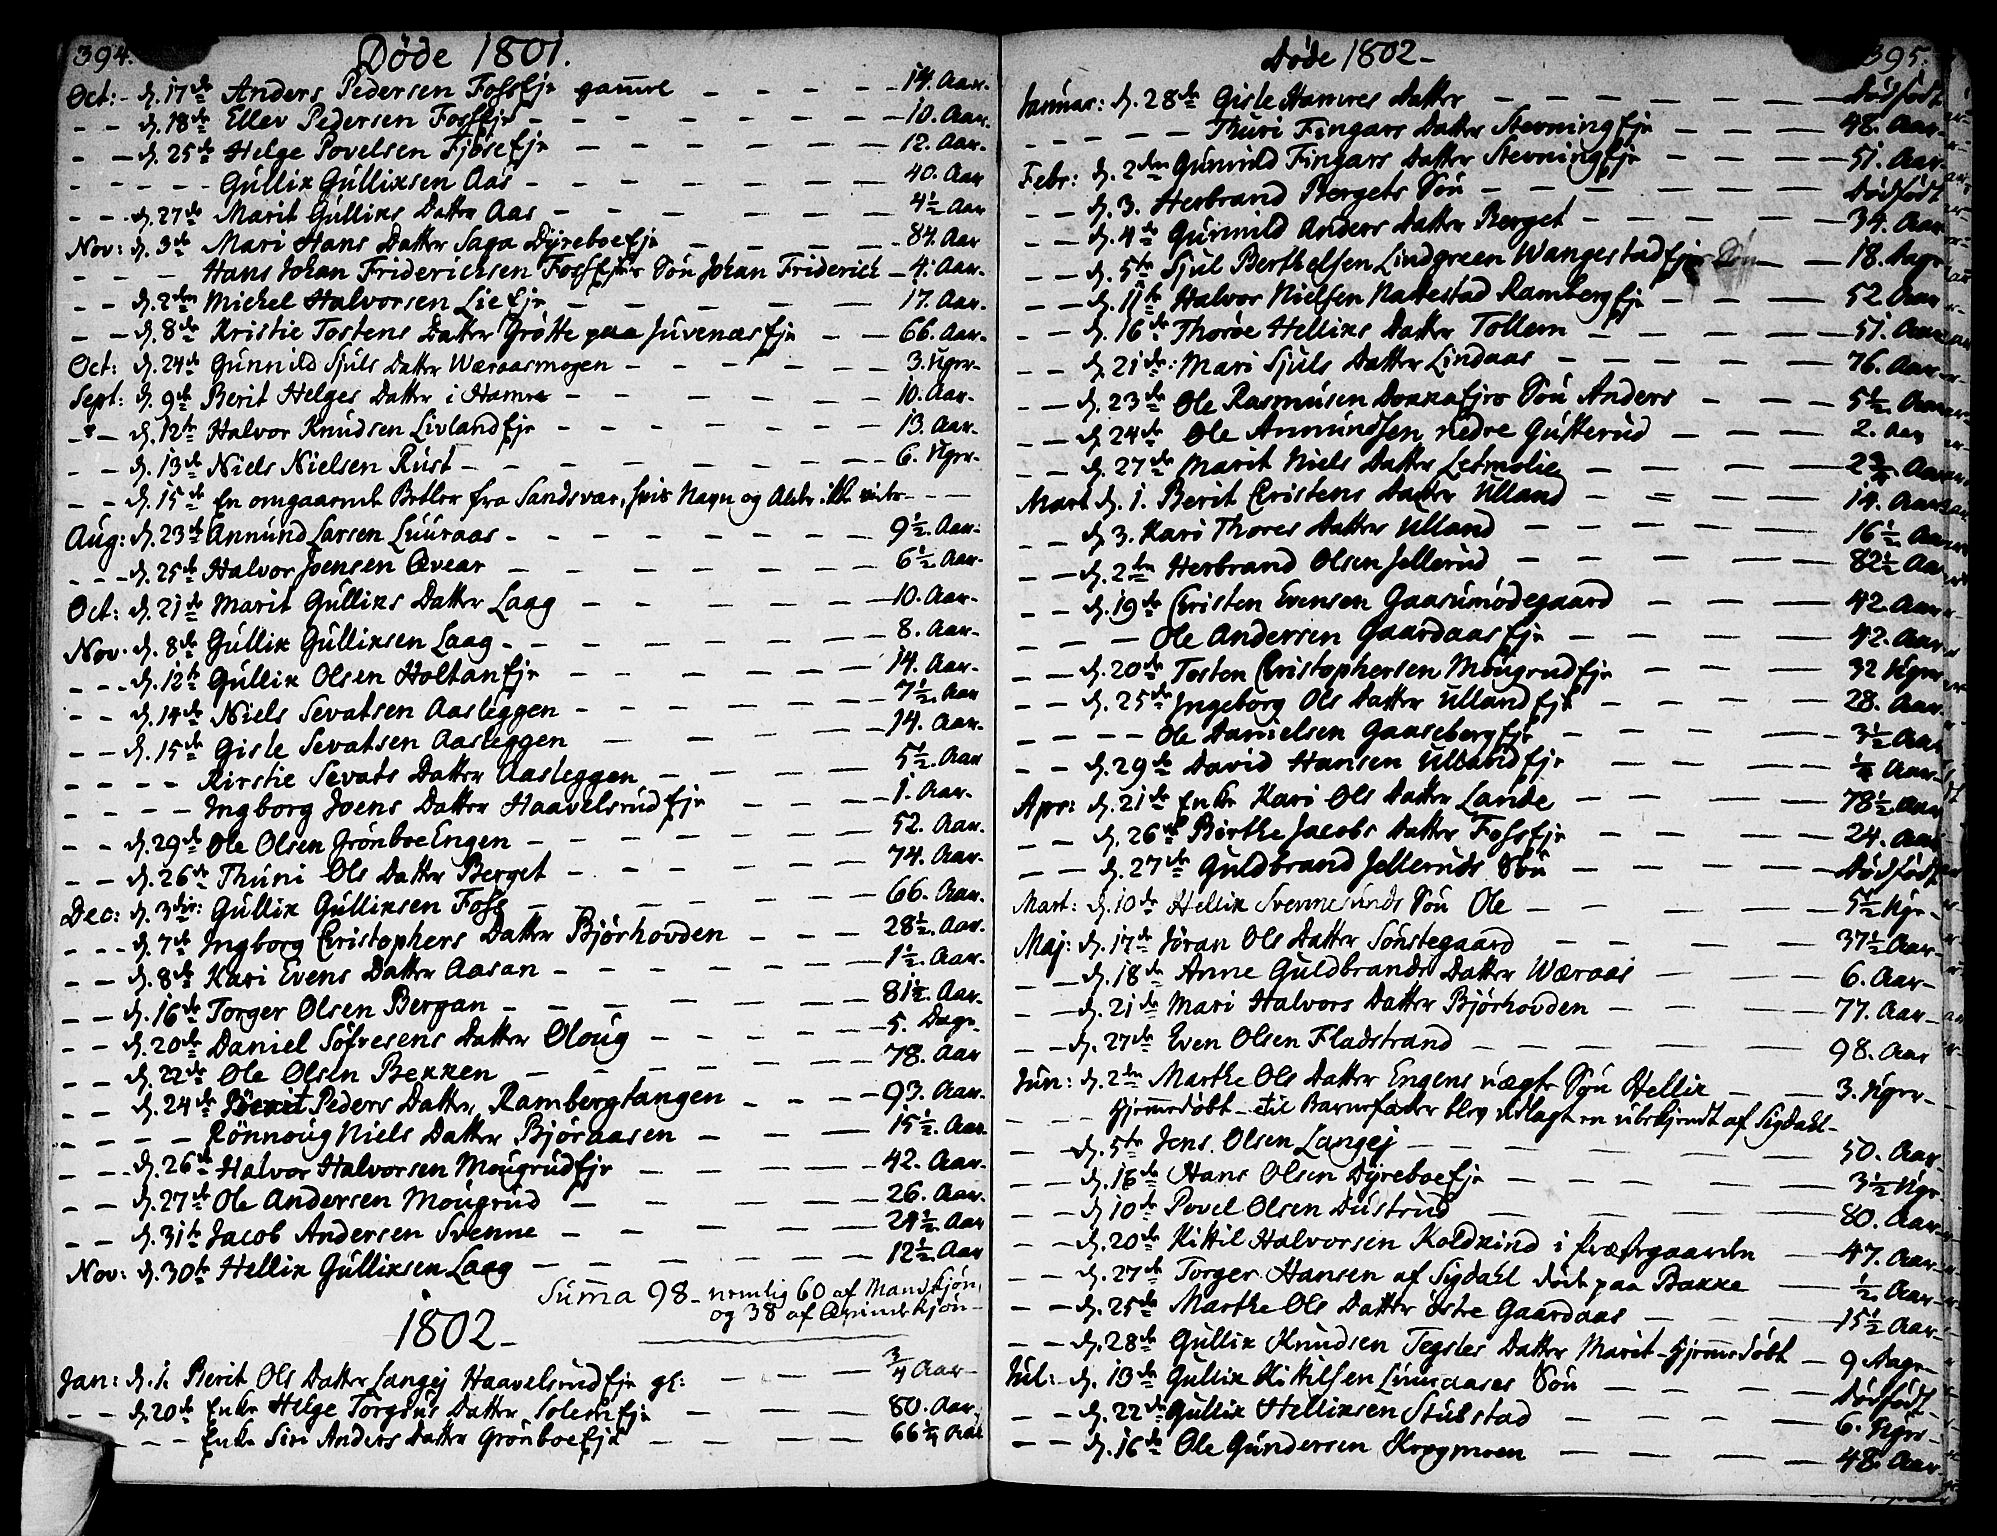 394.
Døde 1801.
Oct: - d. 17de Anders Pedersen FossEje gam̅el - - - - 14. Aar.
- - d. 18de Ellev Pedersen FossEje - - - - 10. Aar.
- - d. 25de Helge Povelsen FjøseEje - - - - 12. Aar.
- - - - Gullik Gulliksen Aas - - - - 40. Aar
- - d. 27de Marit Gulliks Datter Aas - - - - 4½ Aar
Nov: d. 3de Mari Hans Datter Saga DyreboeEje - - - - 84. Aar
- - - Hans Johan Friderichsen FossEjes Søn Johan Friderich - 4. Aar.
- - d. 2den Michel Halvorsen LieEje - - - - 17. Aar.
- - d. 8de Kristie Tostens Datter Grøtte paa JuvenæsEje - - 66. Aar.
Oct: d. 24de Gunnild Sjuls Datter Wæraasmogen - - - - 3. Uger.
Sept: d. 9de Berit Helges Datter i Hamre - - - - 10. Aar.
- - d. 12te Halvor Knudsen LivlandEje - - - - 13. Aar.
- - d. 13de Niels Nielsen Rust - - - - 6. Uger.
- - d. 15de En omgaaende Betler fra Sandsvær, hvis Navn og Alder ikke vides - - -
Aug: d. 23de Anmund Larsen Luuraas - - - - 9½. Aar.
- - - d. 25de Halvor Joensen Ævear - - - - 6½. Aar.
Oct: d. 21de Marit Gulliks Datter Laag - - - - 10. Aar.
Nov. d. 8de Gullik Gulliksen Laag - - - - 8. Aar.
- - - d. 12te Gullik Olsen HoltanEje - - - - 14. Aar.
- - d. 14de Niels Sevatsen Aasleggen - - - - 7½. Aar
- - d. 15de Gisle Sevatsen Aasleggen - - - - 14. Aar.
- - - - Kirstie Sevats Datter Aasleggen - - - - 5½. Aar
- - - - Ingborg Joens Datter HaavelsrudEje - - - 1. Aar.
- - d. 29de Ole Olsen GrønboeEngen - - - - 52. Aar.
- - d. 26de Thuri Ols Datter Berget - - - - 74. Aar.
Dec: d. 3die: Gullik Gulliksen Foss - - - - 66. Aar.
- - - d. 7de Ingborg Christophers Datter Bjørhovden - - - 28½. Aar.
- - d. 8de Kari Evens Datter Aasan - - - - 1½. Aar.
- - d. 16de Torger Olsen Bergan - - - - 81½. Aar.
- - d. 20de Daniel Søfresens Datter Oloug - - - - 5. Dage
- - d. 22de Ole Olsen Bekken - - - - 78. Aar
- - d. 24de Berit Peders Datter Rambergtangen - - - 93. Aar.
- - - - Rønnoug Niels Datter Bjøraasen - - - - 15½. Aar.
- - d. 26de Halvor Halvorsen MougrudEje - - - - 42. Aar.
- - d. 27de Ole Andersen Mougrud - - - - 26. Aar.
- - d. 31te Jacob Andersen Svenne - - - - 24½. Aar
Nov: d. 30te Hellik Gulliksen Laag - - - - 12½. Aar
Sum̅a 98 - nemlig 60 af Mandkjøn,
og 38 af Qvindekjøn -
1802 -
Jan: d. 1. Berit Ols Datter Langej HaavelsrudEje gl: - - - ¾ Aar -
- - d. 20de Enke Helge Torgens Datter SolemEje - - - 80. Aar,
- - - Enke Siri Anders Datter GrønboeEje - - - 66¼ Aar
395.
Døde 1802 -
Januar: d. 28de Gisle Hamres Datter - - - - Dødfødt
- - - - Thuri Fingars Datter StevningEje - - - 48. Aar -
Febr: d. 2den Gunnild Fingars Datter StevningEje - - - 51. Aar -
- - d. 3. Herbrand Bergets Søn - - - - Dødfødt
- - d. 4de Gunnild Anders Datter Berget - - - - 34. Aar
- - d. 5te Sjul Berthelsen Lindgreen WangestadEjes Søn - - 18. Dage
- - d. 11te Halvor Nielsen Nattestad RambergEje - - - 52 Aar
- - d. 16de Thorøe Helliks Datter Tollem - - - - 51. Aar
- - d. 21de: Mari Sjuls Datter Lindaas - - - - 76. Aar
- - d. 23de Ole Rasmusen DokkaEjes Søn Anders - - - 5½. Aar
- - d. 24de Ole Anmundsen nedre Gufterud - - - - 2. Aar
- - d. 27de Marit Niels Datter Letmolie - - - - 2¾ Aar
Mart d. 1. Berit Christens Datter Ulland - - - - 14. Aar
- - d. 3. Kari Thores Datter Ulland - - - - 16½ Aar
- - d. 2den Herbrand Olsen Jellerud - - - - 82½ Aar
- - d. 19de Christen Evensen Gaasumødegaard - - - - 42. Aar
- - - Ole Andersen GaardaasEje - - - - 42. Aar
- - d. 20de Tosten Christophersen MougrudEje - - - 32 Uger
- - d. 25de Ingeborg Ols Datter UllandEje - - - - 28. Aar
- - - - Ole Danielsen GaasebergEje - - - - 3½ Aar
- - d. 29de David Hansen UllandEje - - - - ¼ Aar
Apr: d. 21de Enke Kari Ols Datter Lande - - - - 78½. Aar
- - d. 26de Birthe Jacobs Datter FossEje - - - - 24. Aar
- - d. 27de Guldbrand Jelleruds Søn - - - - Dødfødt
Mart: d. 10de Hellik Svennesunds Søn Ole - - - - 5½ Uge -
Maj: d. 17de Jøran Ols Datter Sønstegaard - - - - 37½ Aar -
- - d. 18de Anne Guldbrands Datter Wæraas - - - - 6. Aar -
- - d. 21de Mari Halvors Datter Bjørhovden - - - - 77. Aar -
- - d. 27de Even Olsen Fladstrand - - - - 98. Aar
Jun: d. 2den Marthe Ols Datter Engens uægte Søn Hellik - - 3. Uger -
- - - Hjem̅edøbt - til Barnefader blev udlagt en ubekjendt af Sigdahl -
- - d. 5te Jens Olsen Langej - - - - 50. Aar
- - d. 16de Hans Olsen DyreboeEje - - - - 3½ Uge
- - d. 10de Povel Olsen Dustrud - - - - 80. Aar
- - d. 20de Kittil Halvorsen Koldkind i Præstgaarden - - 47. Aar
- - d. 27de Torger Hansen af Sigdahl død paa Bakke - - ½. Aar -
- - d. 25de Marthe Ols Datter østre Gaardaas - - - 15½ Aar -
- - d. 28de Gullik Knudsen Tegsles Datter Marit - Hjem̅edøbt - 9 Dage
Jul: - d. 13de Gullik Kittilsen Lunaases Søn - - - Dødfødt
- - d. 22de Gullik Helliksen Stubstad - - - - 6. Uger -
- - d. 16de Ole Gundersen Krogmoen - - - - 48. Aar -